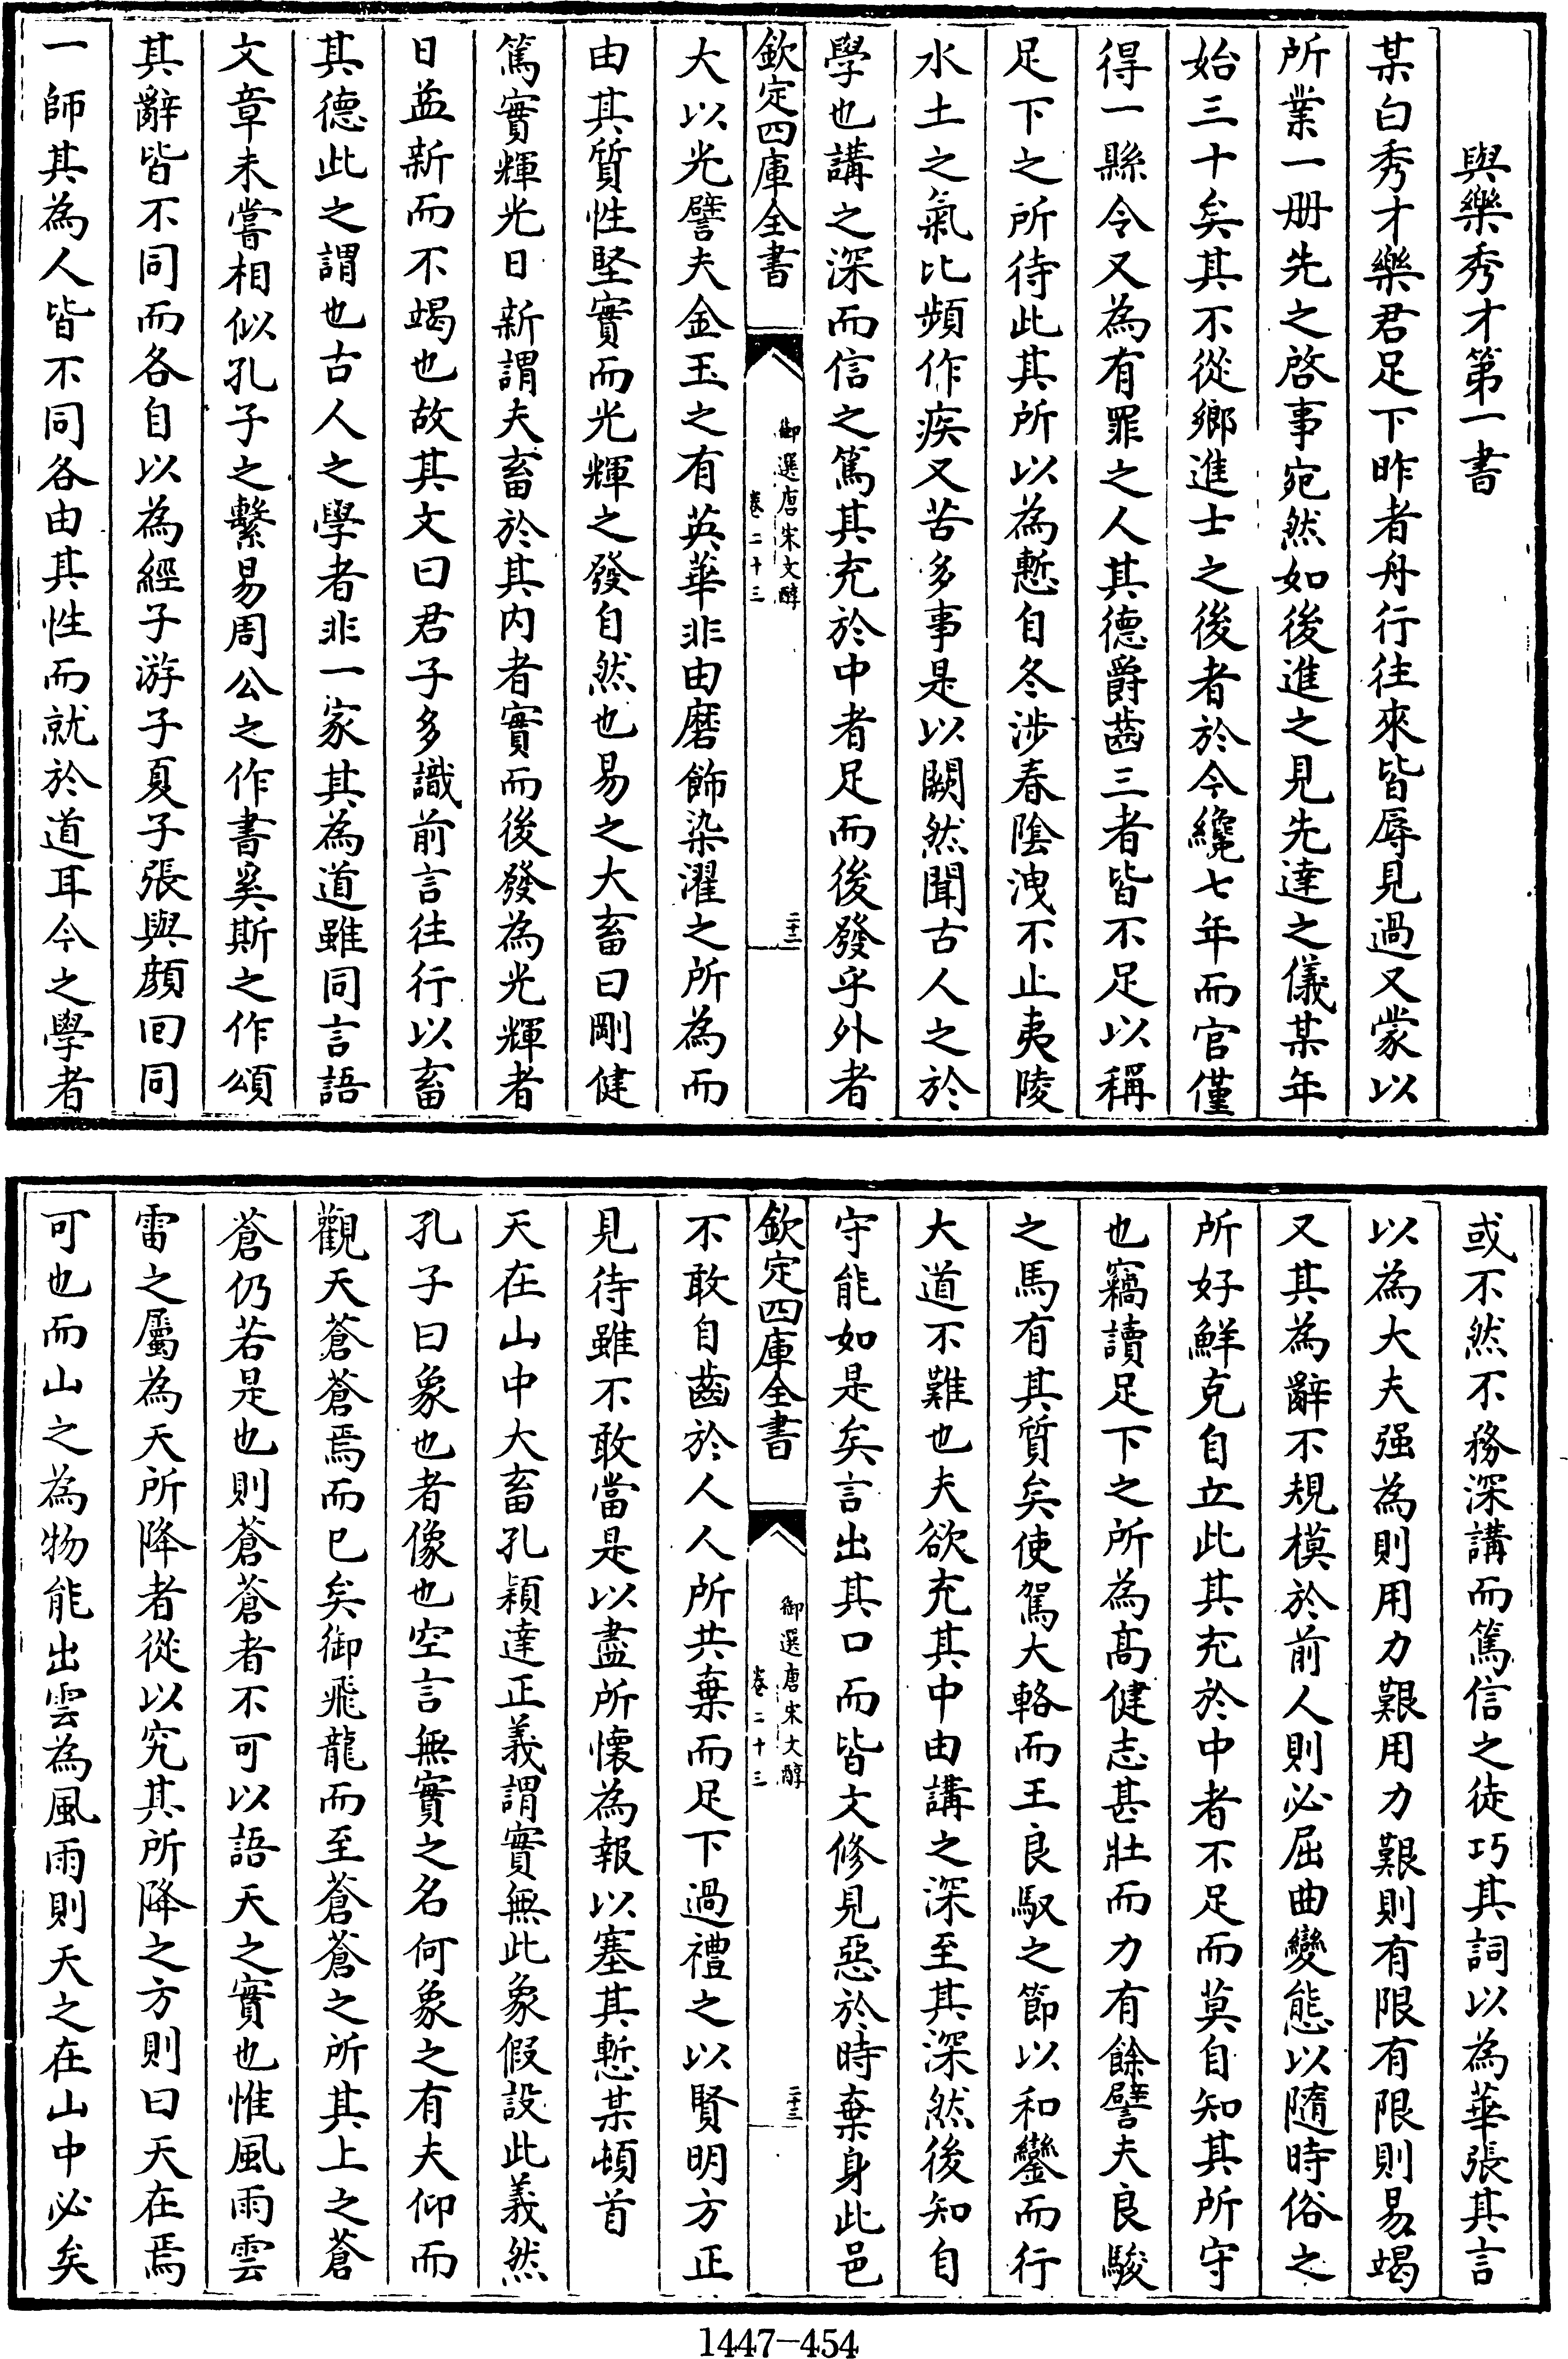 與樂秀才第一書
某白秀才樂君足下昨者舟行往來皆辱見過又蒙以
所業一册先之啓事宛然如後進之見先達之儀某年
始三十矣其不從鄉進士之後者於今纔七年而官僅
得一縣令又為有罪之人其德爵齒三者皆不足以稱
足下之所待此其所以為慙自冬涉春陰洩不止夷陵
水土之氣比頻作疾又苦多事是以闕然聞古人之於
學也講之深而信之篤其充於中者足而後發乎外者
欽定四庫全書
御選唐宋文醇
卷二十三
二十二
大以光譬夫金玉之有英華非由磨飾染濯之所為而
由其質性堅實而光輝之發自然也易之大畜曰剛健
篤實輝光日新謂夫畜於其内者實而後發為光輝者
日益新而不竭也故其文曰君子多識前言往行以畜
其德此之謂也古人之學者非一家其為道雖同言語
文章未嘗相似孔子之繫易周公之作書奚斯之作頌
其辭皆不同而各自以為經子游子夏子張與顔回同
一師其為人皆不同各由其性而就於道耳今之學者
或不然不務深講而篤信之徒巧其詞以為華張其言
以為大夫强為則用力艱用力艱則有限有限則易竭
又其為辭不規模於前人則必屈曲變態以隨時俗之
所好鮮克自立此其充於中者不足而莫自知其所守
也竊讀足下之所為高健志甚壯而力有餘譬夫良駿
之馬有其質矣使駕大輅而王良馭之節以和鑾而行
大道不難也夫欲充其中由講之深至其深然後知自
守能如是矣言出其口而皆文修見惡於時棄身此邑
欽定四庫全書
御選唐宋文醇
卷二十三
二十三
不敢自齒於人人所共棄而足下過禮之以賢明方正
見待雖不敢當是以盡所懷為報以塞其慙某頓首
天在山中大畜孔穎達正義謂實無此象假設此義然
孔子曰象也者像也空言無實之名何象之有夫仰而
觀天蒼蒼焉而已矣御飛龍而至蒼蒼之所其上之蒼
蒼仍若是也則蒼蒼者不可以語天之實也惟風雨雲
雷之屬為天所降者從以究其所降之方則曰天在焉
可也而山之為物能出雲為風雨則天之在山中必矣
1447-454